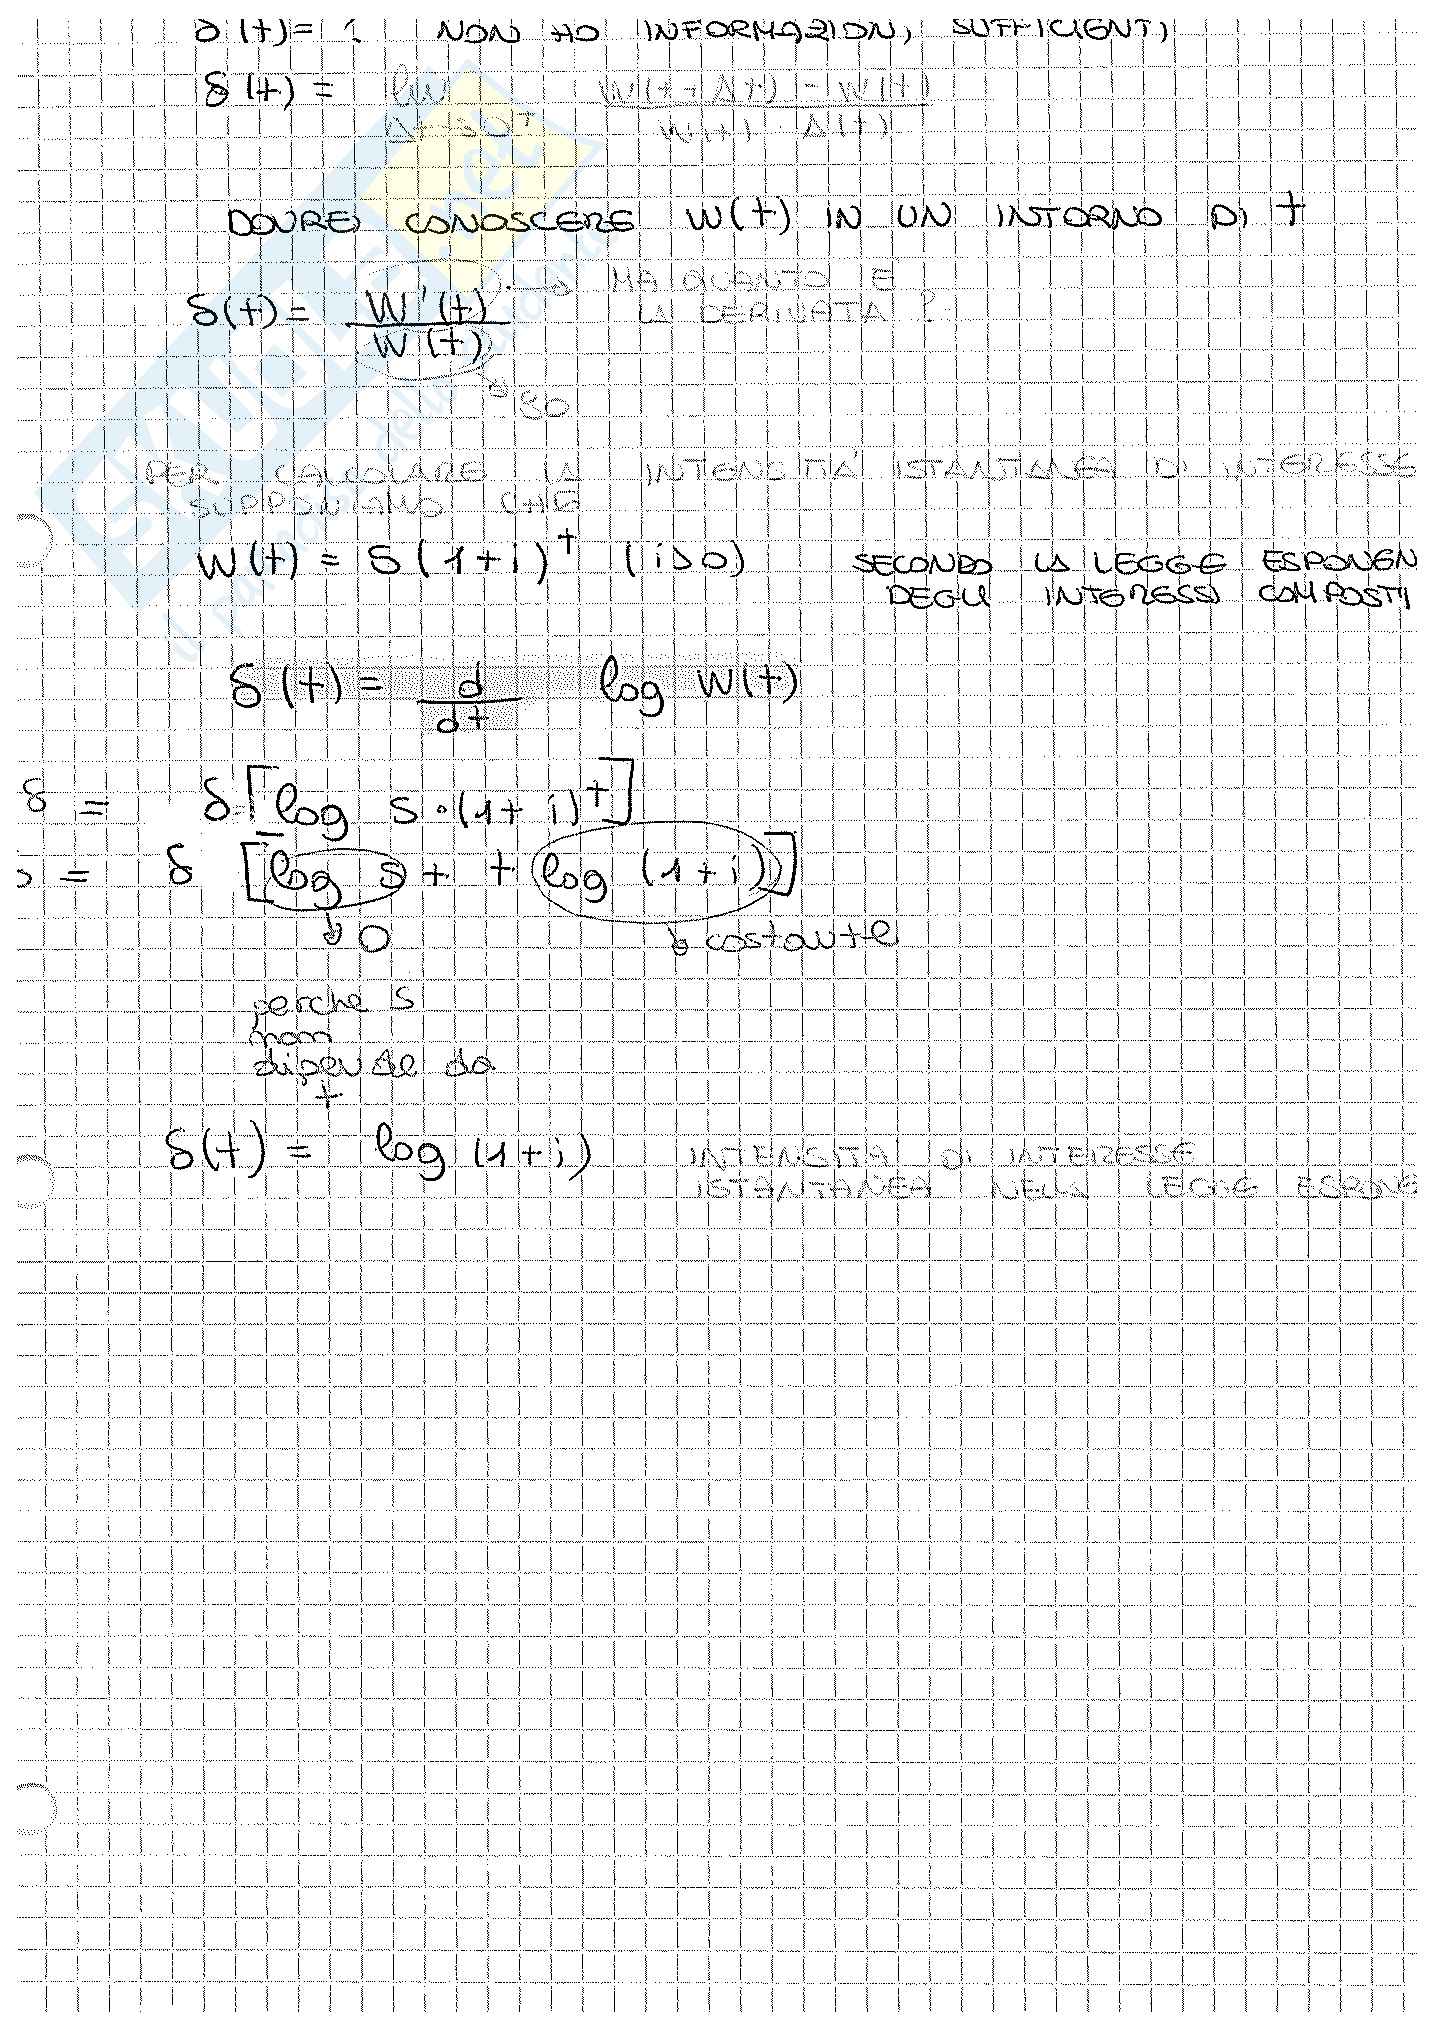 δ(t) = ? NON HO INFORMAZIONI SUFFICIENTI
δ(t) = lim W(t+Δt) - W(t)
Δt→0+ W(t) · Δ(t)
DOVREI CONOSCERE W(t) IN UN INTORNO DI t
δ(t) = W'(t) → MA QUANTO È
W(t) LA DERIVATA?
→ SO
PER CALCOLARE LA INTENSITÀ ISTANTANEA DI INTERESSE
SUPPONIAMO CHE
W(t) = S(1+i)^t (i>0) SECONDO LA LEGGE ESPONEN
DEGLI INTERESSI COMPOSTI
δ(t) = d log W(t)
dt
δ = δ [log S·(1+i)^t]
= δ [log S + t log (1+i)]
→ 0 → costante
perche S
non
dipende da
t
δ(t) = log (1+i) INTENSITÀ DI INTERESSE
ISTANTANEA NELLA LEGGE ESPONE